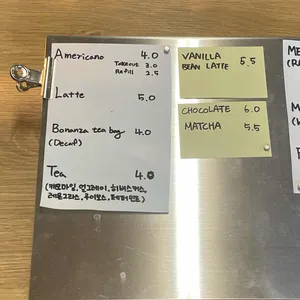 Americano 4.0
Takeout 3.0
Refill 2.5
Latte 5.0
Bonanza tea bag 4.0
(Decaf)
Tea 4.0
(캐모마일, 얼그레이, 히비스커스,
레몬그라스, 루이보스, 페퍼민트)
VANILLA
BEAN LATTE 5.5
CHOCOLATE 6.0
MATCHA 5.5